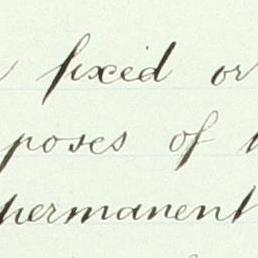 fixed or
poses of
permanent